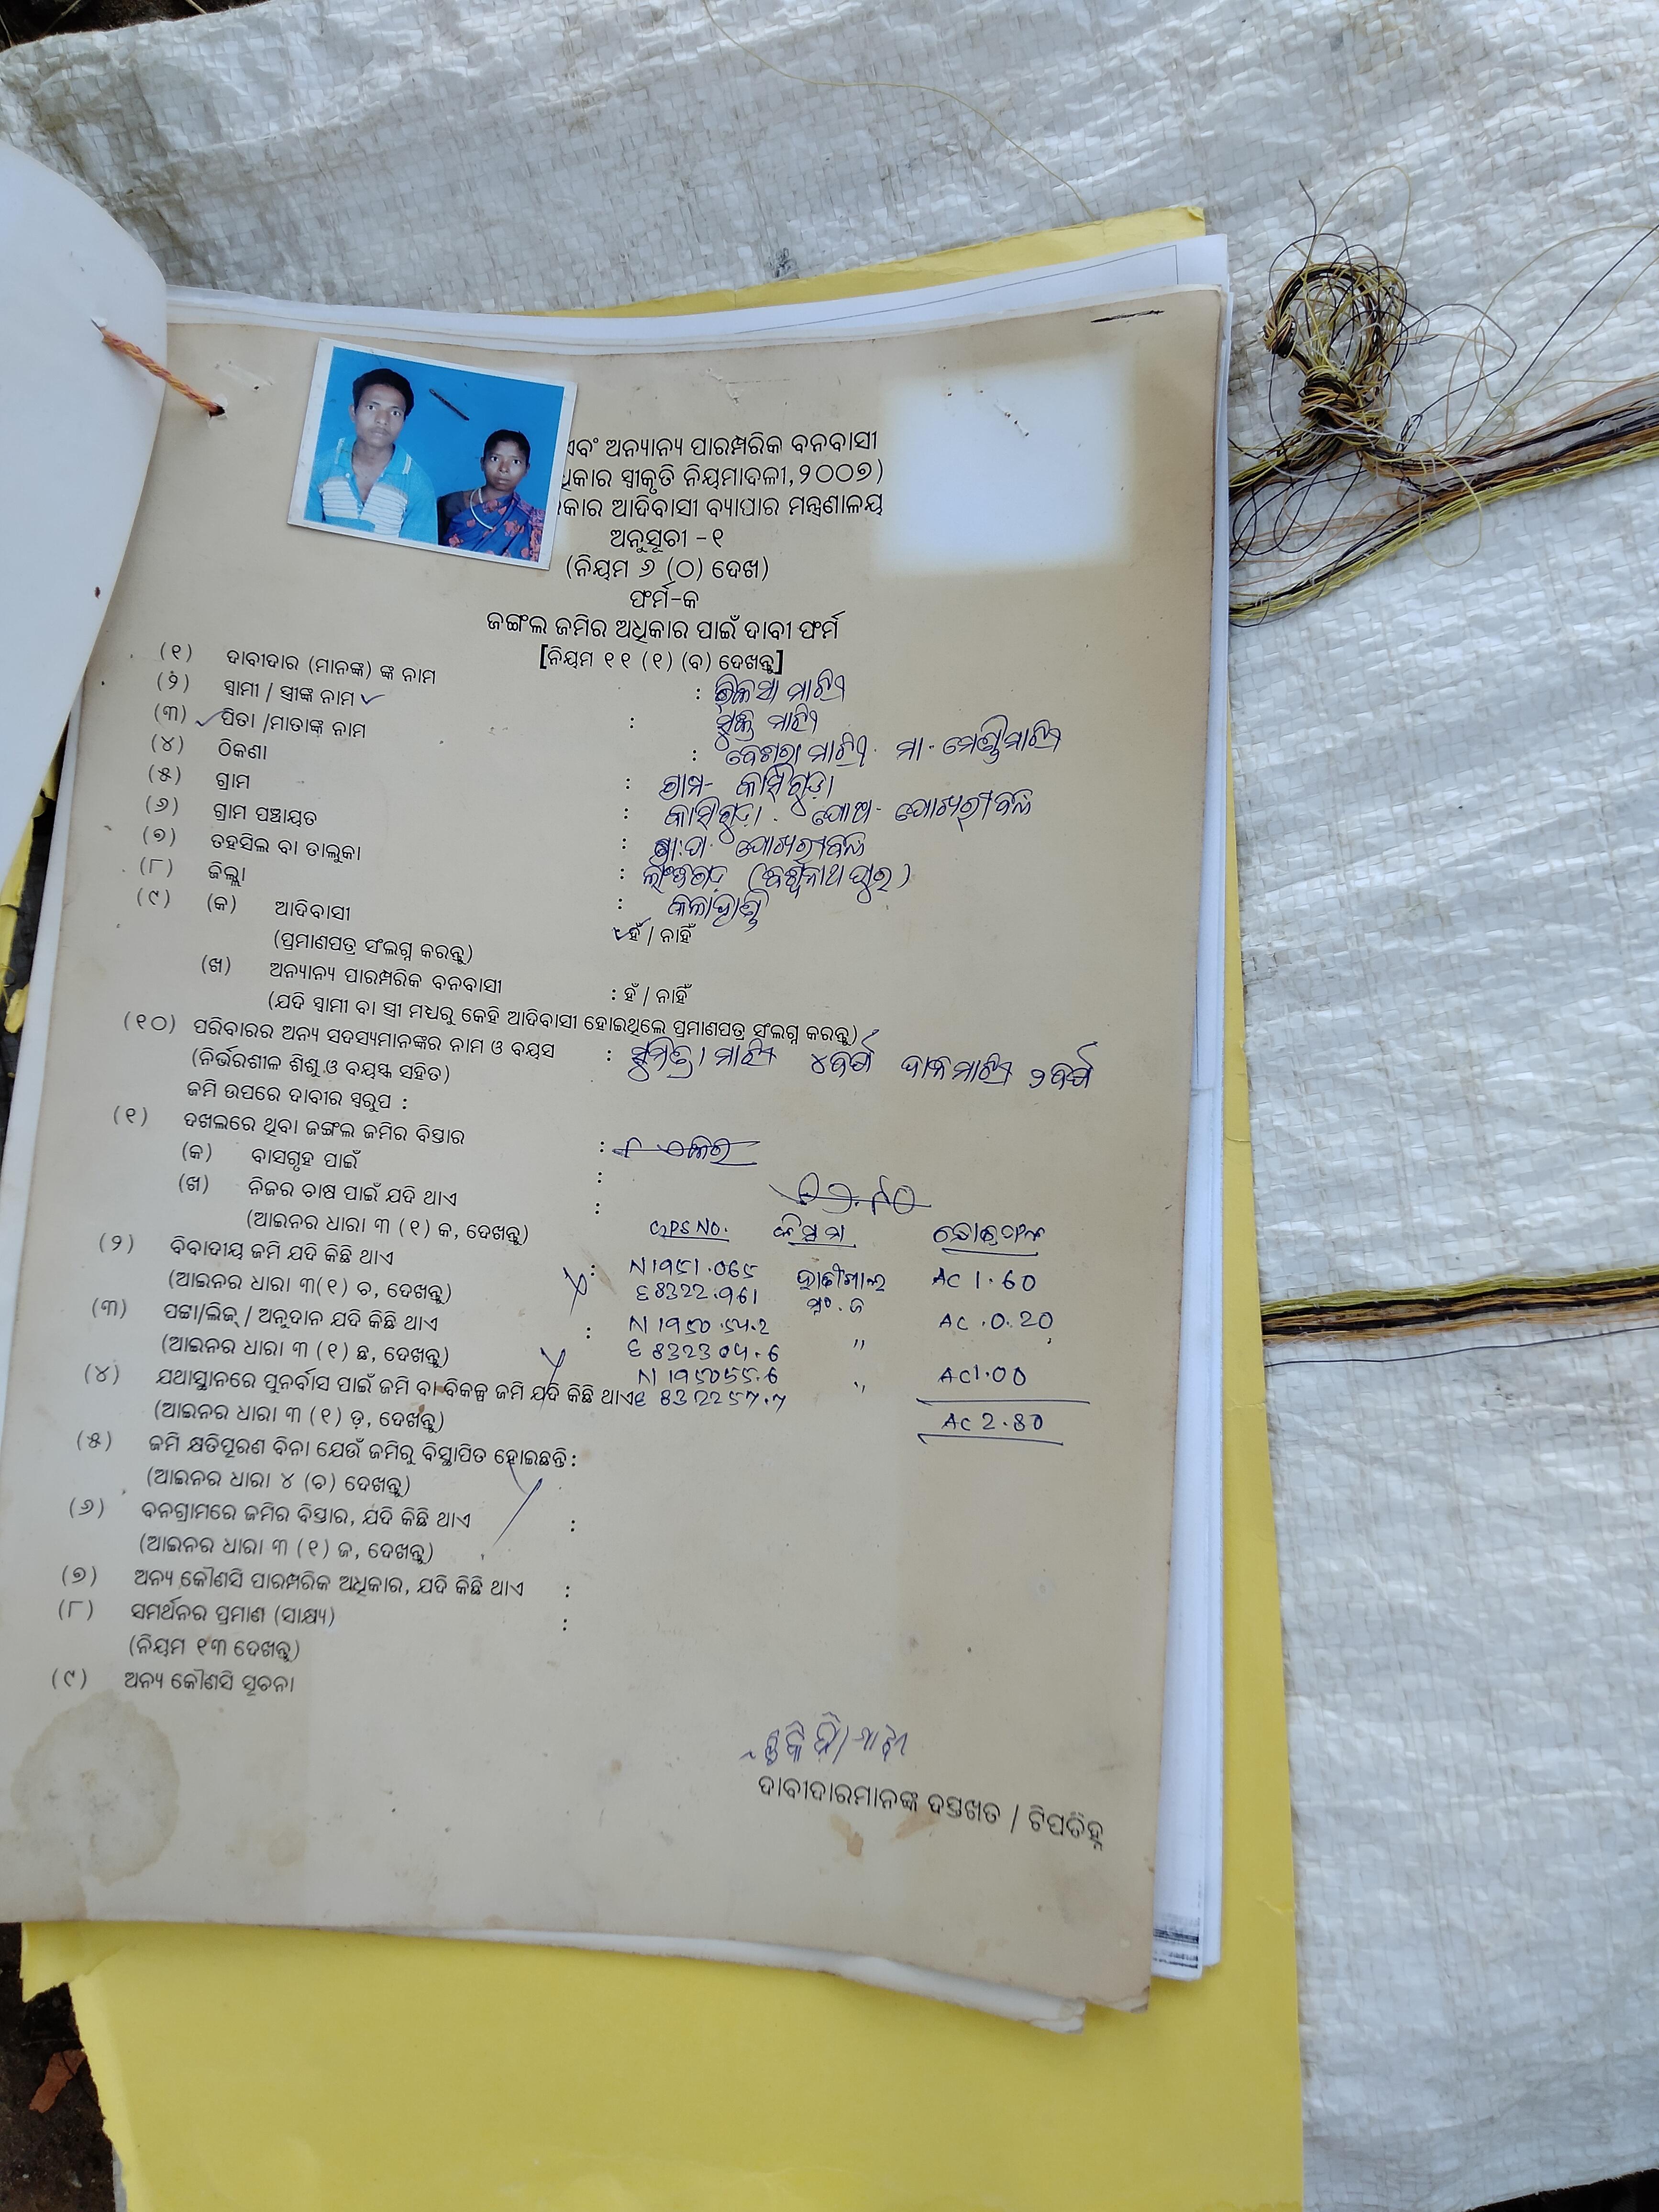 ଏବଂ ଅନ୍ୟାନ୍ୟ ପାରମ୍ପରିକ ବନବାସୀ
ସ୍ୱୀକୃତି ନିୟମାବଳୀ,୨୦୦୭)
ଆଦିବାସୀ ବ୍ୟାପାର ମନ୍ତ୍ରଣାଳୟ
ଅନୁସୂଚୀ -୧
(ନିୟମ ୬ (ଠ) ଦେଖ)
ଫର୍ମ-କ
ଜଙ୍ଗଲ ଜମିର ଅଧିକାର ପାଇଁ ଦାବୀ ଫର୍ମ
[ନିୟମ ୧୧ (୧) (ବ) ଦେଖନ୍ତୁ]
(୧) ଦାବୀଦାର (ମାନଙ୍କ) ଙ୍କ ନାମ : ମାଝି
(୨) ସ୍ୱାମୀ / ସ୍ତ୍ରୀଙ୍କ ନାମ : ମାଝି
(୩) ପିତା /ମାତାଙ୍କ ନାମ : ମାଝି ମା-
(୪) ଠିକଣା : ଗ୍ରାମ- କାସିଗୁଡ଼ା
(୫) ଗ୍ରାମ : କାସିଗୁଡ଼ା ପୋଖରୀବନ୍ଧ
(୬) ଗ୍ରାମ ପଞ୍ଚାୟତ : ଗ୍ରା:ପ ପୋଖରୀବନ୍ଧ
(୭) ତହସିଲ ବା ତାଲୁକା : ଲାଂଜିଗଡ଼ (ବିଶ୍ୱନାଥପୁର)
(୮) ଜିଲ୍ଲା : କଳାହାଣ୍ଡି
(୯) (କ) ଆଦିବାସୀ ହଁ / ନାହିଁ
(ପ୍ରମାଣପତ୍ର ସଂଲଗ୍ନ କରନ୍ତୁ)
(ଖ) ଅନ୍ୟାନ୍ୟ ପାରମ୍ପରିକ ବନବାସୀ : ହଁ / ନାହିଁ
(ଯଦି ସ୍ୱାମୀ ବା ସ୍ତ୍ରୀ ମଧ୍ୟରୁ କେହି ଆଦିବାସୀ ହୋଇଥିଲେ ପ୍ରମାଣପତ୍ର ସଂଲଗ୍ନ କରନ୍ତୁ)
(୧୦) ପରିବାରର ଅନ୍ୟ ସଦସ୍ୟମାନଙ୍କର ନାମ ଓ ବୟସ : ସୁମିତ୍ରା ମାଝି ୪ବର୍ଷ ମାଝି ୨ବର୍ଷ
(ନିର୍ଭରଶୀଳ ଶିଶୁ ଓ ବୟସ୍କ ସହିତ)
ଜମି ଉପରେ ଦାବୀର ସ୍ୱରୂପ :
(୧) ଦଖଲରେ ଥିବା ଜଙ୍ଗଲ ଜମିର ବିସ୍ତାର :
(କ) ବାସଗୃହ ପାଇଁ :
(ଖ) ନିଜର ଚାଷ ପାଇଁ ଯଦି ଥାଏ :
(ଆଇନର ଧାରା ୩ (୧) କ, ଦେଖନ୍ତୁ) GPS NO. କିସମ
(୨) ବିବାଦୀୟ ଜମି ଯଦି କିଛି ଥାଏ : N 1951.065 AC 1.60
(ଆଇନର ଧାରା ୩(୧) ଚ, ଦେଖନ୍ତୁ) E 8322.961
(୩) ପଟ୍ଟା/ଲିଜ୍ / ଅନୁଦାନ ଯଦି କିଛି ଥାଏ : AC .0.20
(ଆଇନର ଧାରା ୩ (୧) ଛ, ଦେଖନ୍ତୁ) "
(୪) ଯଥାସ୍ଥାନରେ ପୁନର୍ବାସ ପାଇଁ ଜମି ବା ବିକଳ୍ପ ଜମି ଯଦି କିଛି ଥାଏ " AC1.00
(ଆଇନର ଧାରା ୩ (୧) ଡ଼, ଦେଖନ୍ତୁ) AC 2.80
(୫) ଜମି କ୍ଷତିପୂରଣ ବିନା ଯେଉଁ ଜମିରୁ ବିସ୍ଥାପିତ ହୋଇଛନ୍ତି :
(ଆଇନର ଧାରା ୪ (ଚ) ଦେଖନ୍ତୁ)
(୬) ବନଗ୍ରାମରେ ଜମିର ବିସ୍ତାର, ଯଦି କିଛି ଥାଏ :
(ଆଇନର ଧାରା ୩ (୧) ଜ, ଦେଖନ୍ତୁ)
(୭) ଅନ୍ୟ କୌଣସି ପାରମ୍ପରିକ ଅଧିକାର, ଯଦି କିଛି ଥାଏ :
(୮) ସମର୍ଥନର ପ୍ରମାଣ (ସାକ୍ଷ୍ୟ) :
(ନିୟମ ୧୩ ଦେଖନ୍ତୁ)
(୯) ଅନ୍ୟ କୌଣସି ସୂଚନା
ଦାବୀଦାରମାନଙ୍କ ଦସ୍ତଖତ / ଟିପଚିହ୍ନ